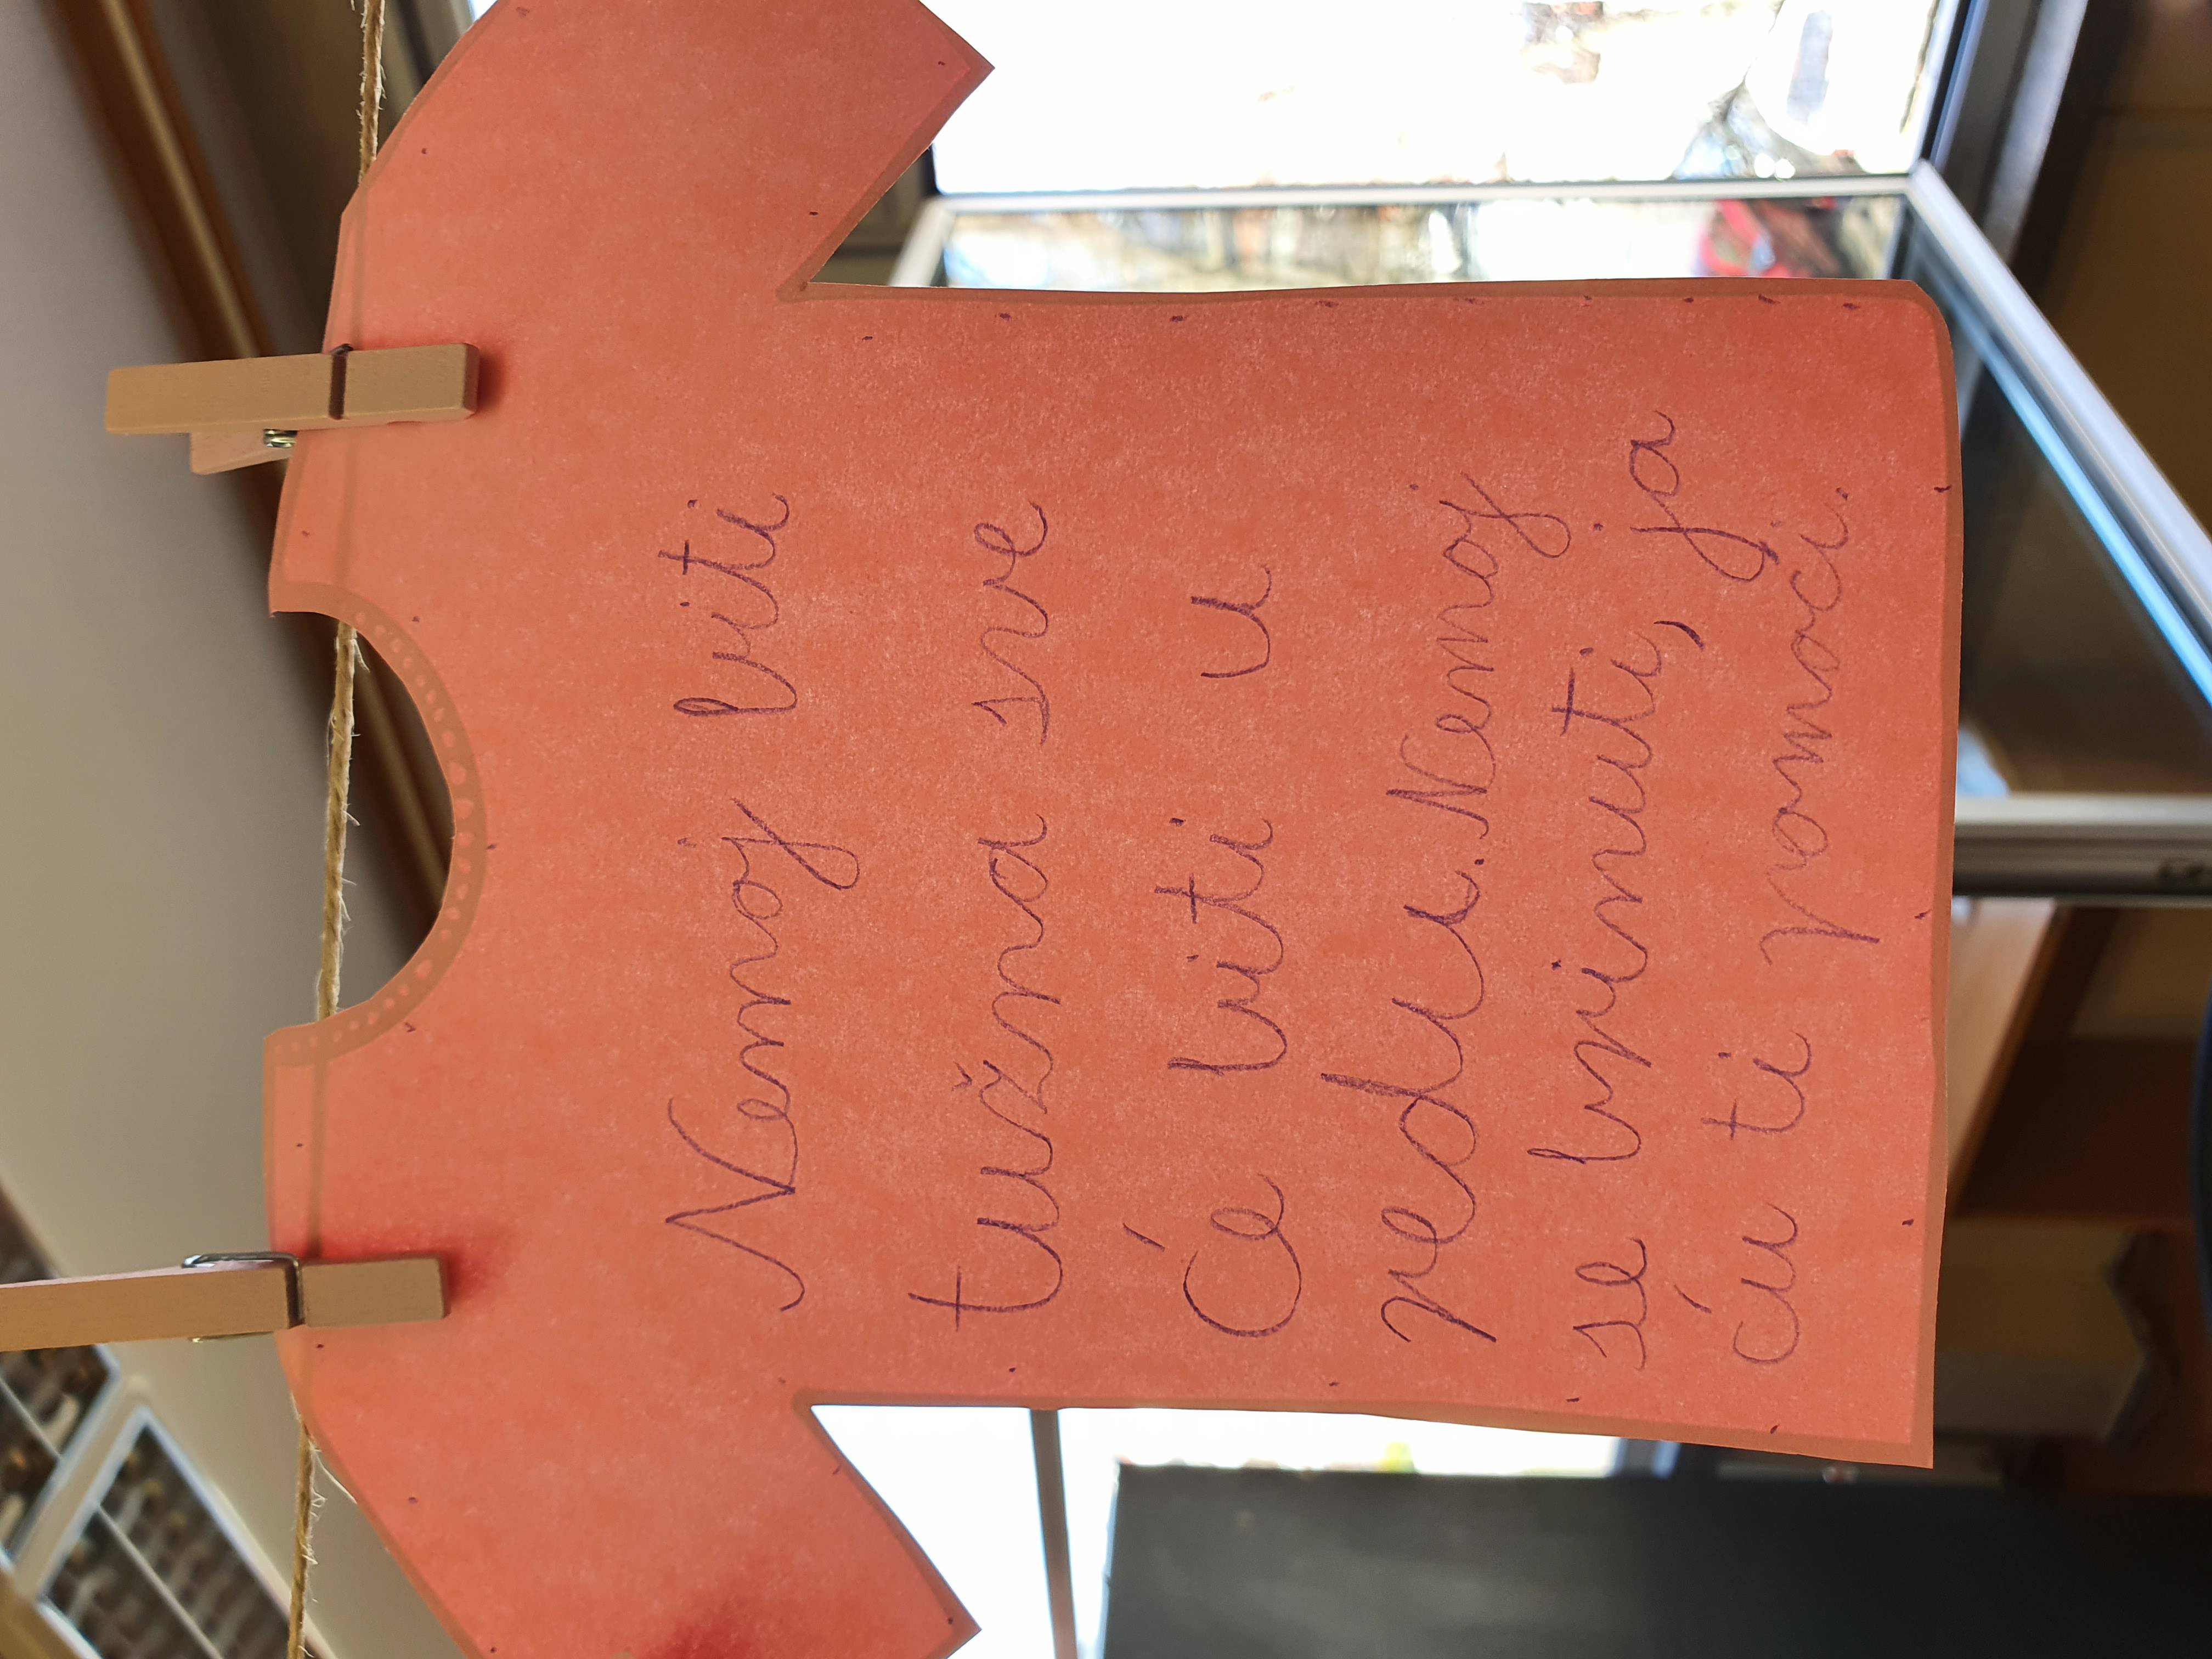 Nemoj biti
tužna sve
Će biti u
redu. Nemoj
se brinuti, ja
ću ti pomoći.